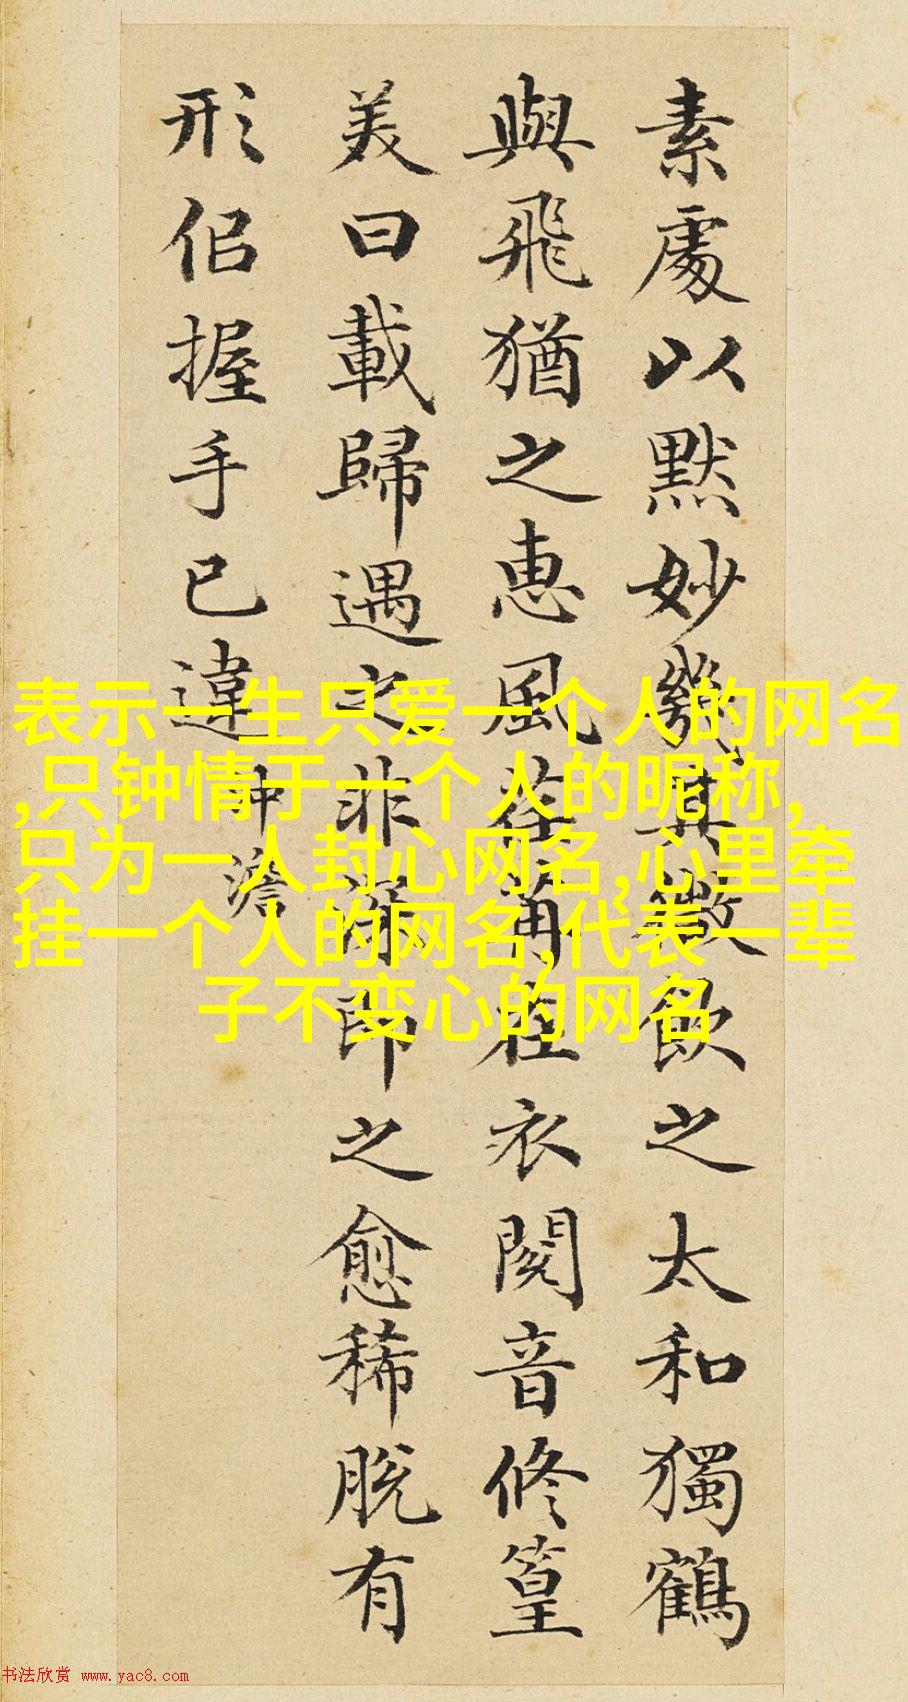 素處以默妙幾其微飲之太和獨鶴
與飛猶之惠風荏苒在衣閱音修篁
美曰載歸遇之非深即之愈稀脫有
形侣握手已違
冲澹
表示一生只爱一个人的网名
,只钟情于一个人的昵称,
只为一人封心网名,心里牵
挂一个人的网名,代表一辈
子不变心的网名
书法欣赏 www.yac8.com